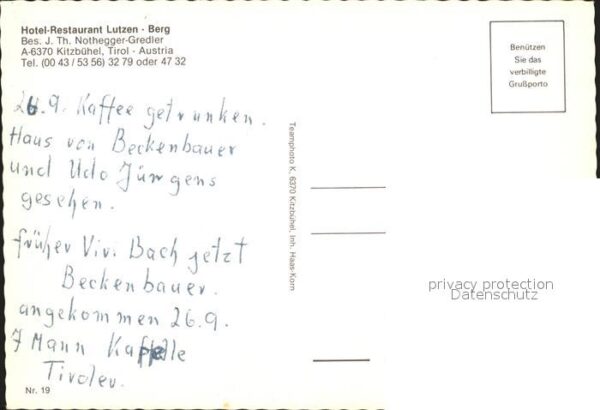 Hotel-Restaurant Lutzen - Berg
Bes. J. Th. Nothegger-Gredler
A-6370 Kitzbühel, Tirol - Austria
Tel. (00 43 / 53 56) 32 79 oder 47 32
Benützen
Sie das
verbilligte
Grußporto
26.9. Kaffee getrunken.
Haus von
Beckenbauer
und Udo Jürgens
gesehen.
früher Viv. Bach jetzt
Beckenbauer.
angekommen 26.9.
7 Mann Kapelle
Tiroler.
Nr. 19
Teamphoto K, 6370 Kitzbühel. Inh. Haas-Korn
privacy protection
Datenschutz